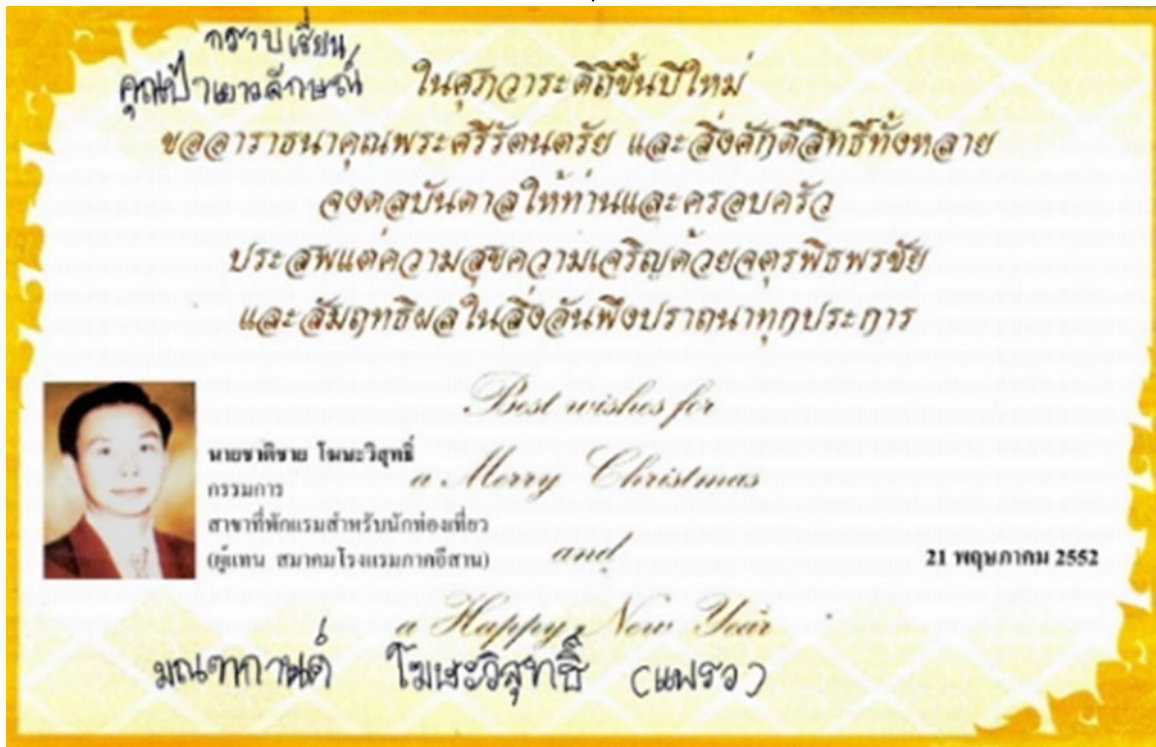 กราบเรียน
คุณป้าเยาวลักษณ์
ในศุภวาระดิถีขึ้นปีใหม่
ขออาราธนาคุณพระศรีรัตนตรัย และสิ่งศักดิ์สิทธิ์ทั้งหลาย
จงดลบันดาลให้ท่านและครอบครัว
ประสพแต่ความสุขความเจริญด้วยจตุรพิธพรชัย
และสัมฤทธิผลในสิ่งอันพึงปรารถนาทุกประการ
Best wishes for
นายชาติชาย โฆษะวิสุทธิ์
a Merry Christmas
กรรมการ
สาขาที่พักแรมสำหรับนักท่องเที่ยว
and
(ผู้แทน สมาคมโรงแรมภาคอีสาน)
21 พฤษภาคม 2552
a Happy New Year
มณฑกานต์ โฆษะวิสุทธิ์ (แพรว)